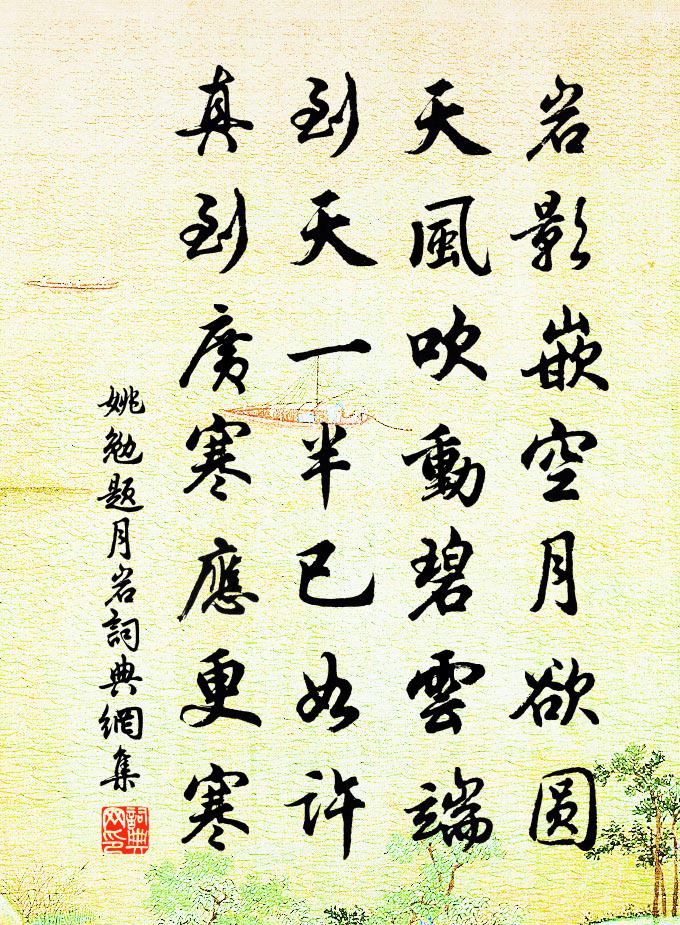 岩影嵌空月欲圆
天風吹動碧雲端
到天一半已如許
真到廣寒應更寒
姚勉題月岩詞典網集
詞典网印